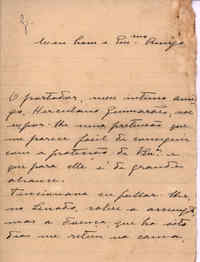 Meu bom e Ex.mo Amigo
O portador, meu intimo ami-
go, Herculano Guimarães, vae
expor-lhe uma pretenção que
me parece facil de conseguir
com a protecção de V. Ex.ª e
que para elle é de grande
alcance.
Tencionava eu fallar-lhe,
no Senado, sobre o assumpto,
mas a doença, que ha oito
dias me retem na cama,